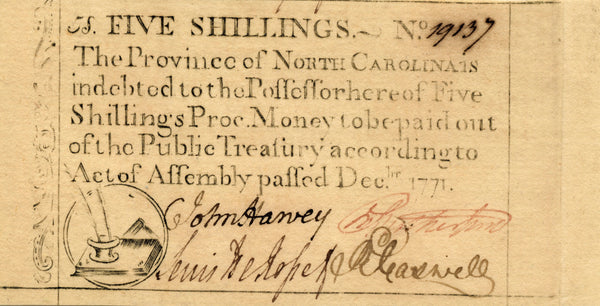 5s. FIVE SHILLINGS.~ No. 19137
The Province of NORTH CAROLINA is
indebted to the Poſſeſſor hereof Five
Shillings Proc. Money to be paid out
of the Public Treaſury according to
Act of Aſſembly paſſed Decbr. 1771.
John Harvey Rutherfurd
Lewis De Rosset R Caswell